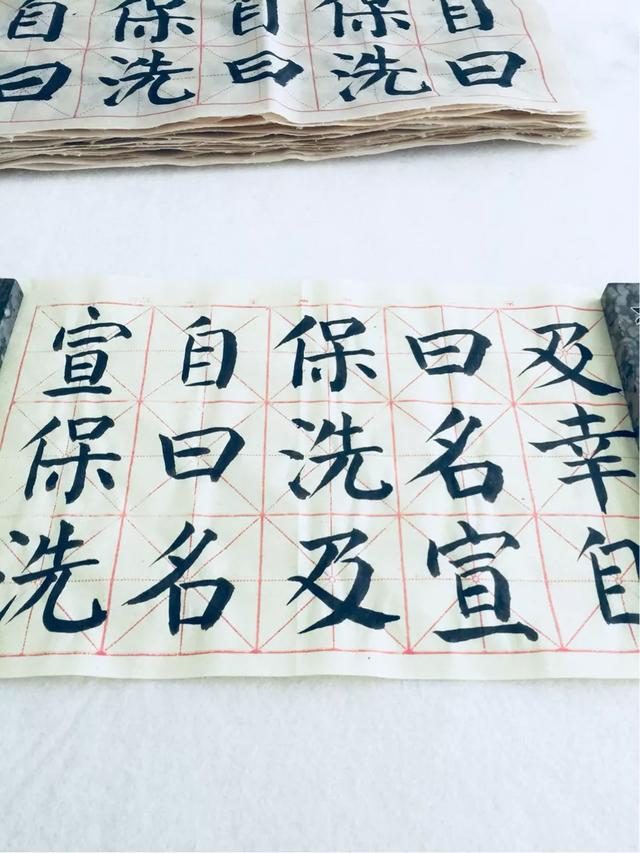 自保自保自
曰洗曰洗曰
宣自保曰及
保曰洗名幸
洗名及宣自